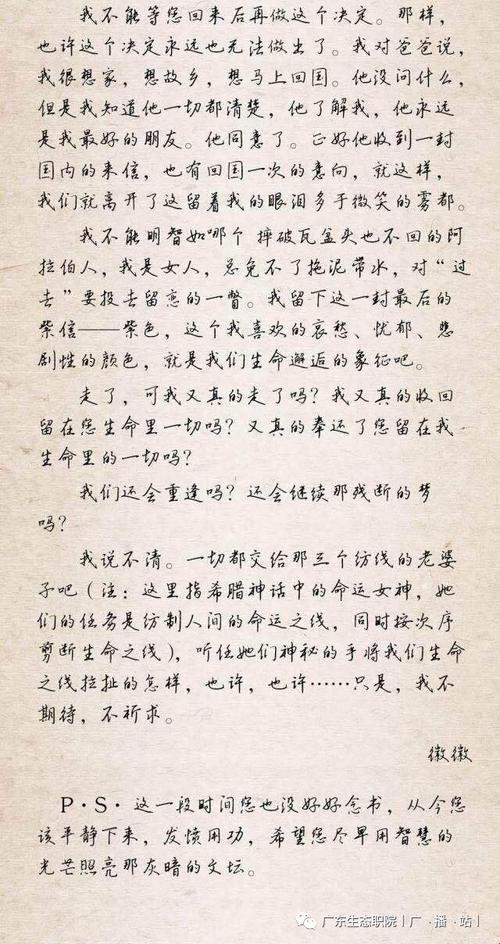 我不能等您回来后再做这个决定。那样，
也许这个决定永远也无法做出了。我对爸爸说，
我很想家，想故乡，想马上回国。他没问什么，
但是我知道他一切都清楚，他了解我，他永远
是我最好的朋友。他同意了。正好他收到一封
国内的来信，也有回国一次的意向，就这样，
我们就离开了这留着我的眼泪多于微笑的雾都。
我不能明智如哪个 摔破瓦盆头也不回的阿
拉伯人，我是女人，总免不了拖泥带水，对“过
去”要投去留恋的一瞥。我留下这一封最后的
紫信——紫色，这个我喜欢的哀愁、忧郁、悲
剧性的颜色，就是我们生命邂逅的象征吧。
走了，可我又真的走了吗？我又真的收回
留在您生命里一切吗？又真的奉还了您留在我
生命里的一切吗？
我们还会重逢吗？还会继续那残断的梦
吗？
我说不清。一切都交给那三个纺线的老婆
子吧（注：这里指希腊神话中的命运女神，她
们的任务是纺制人间的命运之线，同时按次序
剪断生命之线），听任她们神秘的手将我们生命
之线拉扯的怎样，也许，也许……只是，我不
期待，不祈求。
徽徽
P·S· 这一段时间您也没好好念书，从今您
该平静下来，发愤用功，希望您尽早用智慧的
光芒照亮那灰暗的文坛。
广东生态职院丨广·播·站丨